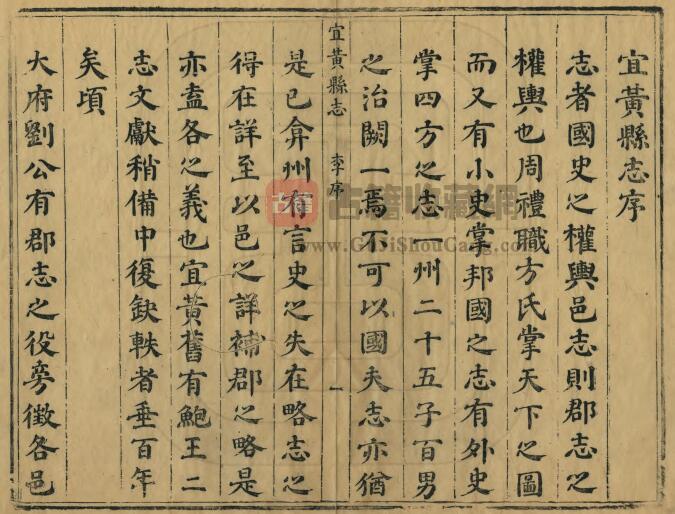 宜黃縣志序
志者國史之權輿邑志則郡志之
權輿也周禮職方氏掌天下之圖
而又有小史掌邦國之志有外史
掌四方之志一州二十五子百男
之治闕一焉不可以國夫志亦猶
宜黃縣志
李序
一
是已弇州有言史之失在略志之
得在詳至以邑之詳補郡之略是
亦盍各之義也宜黃舊有鮑王二
志文獻稍備中復缺軼者垂百年
矣頃
大府劉公有郡志之役旁徵各邑
古籍收藏網
www.GujiShouCang.com